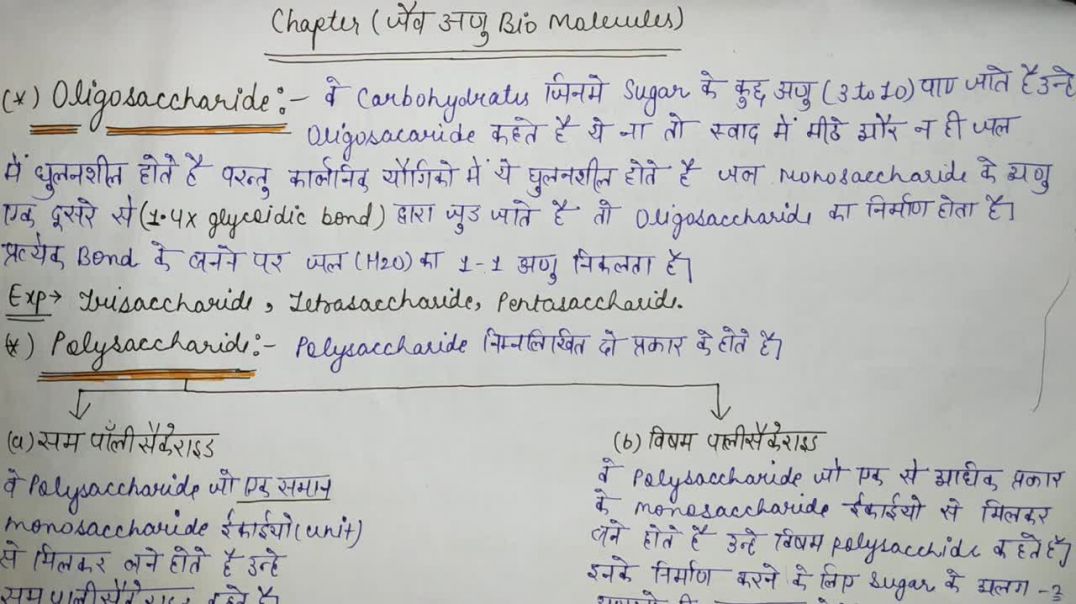 Chapter (जैव अणु Bio Molecules)
(*) Oligosaccharide :- वे Carbohydrates जिनमे Sugar के कुछ अणु (3 to 10) पाए जाते है उन्हे
Oligosacaride कहते है ये ना तो स्वाद में मीठे और न ही जल
में घुलनशील होते है परन्तु कार्बनिक यौगिको में ये घुलनशील होते है जब monosaccharide के अणु
एक दुसरे से (1-4 x glycoidic bond) द्वारा जुड जाते है तो Oligosaccharide का निर्माण होता है।
प्रत्येक Bond के बनने पर जल (H2O) का 1-1 अणु निकलता है।
Exp → Trisaccharide, Tetrasaccharide, Pentasaccharid.
(*) Polysaccharide :- Polysaccharide निम्नलिखित दो प्रकार के होते है।
(a) सम पॉलीसैकेराइड
वे Polysaccharide जो एक समान
monosaccharide ईकाईयो (unit)
से मिलकर बने होते है उन्हे
सम पालीसैकेराइड कहते है।
(b) विषम पालीसैकेराइड
वे Polysaccharide जो एक से अधिक प्रकार
के monosaccharide ईकाईयो से मिलकर
बने होते है उन्हे विषम polysacchide कहते है।
इनके निर्माण करने के लिए Sugar के अलग -2